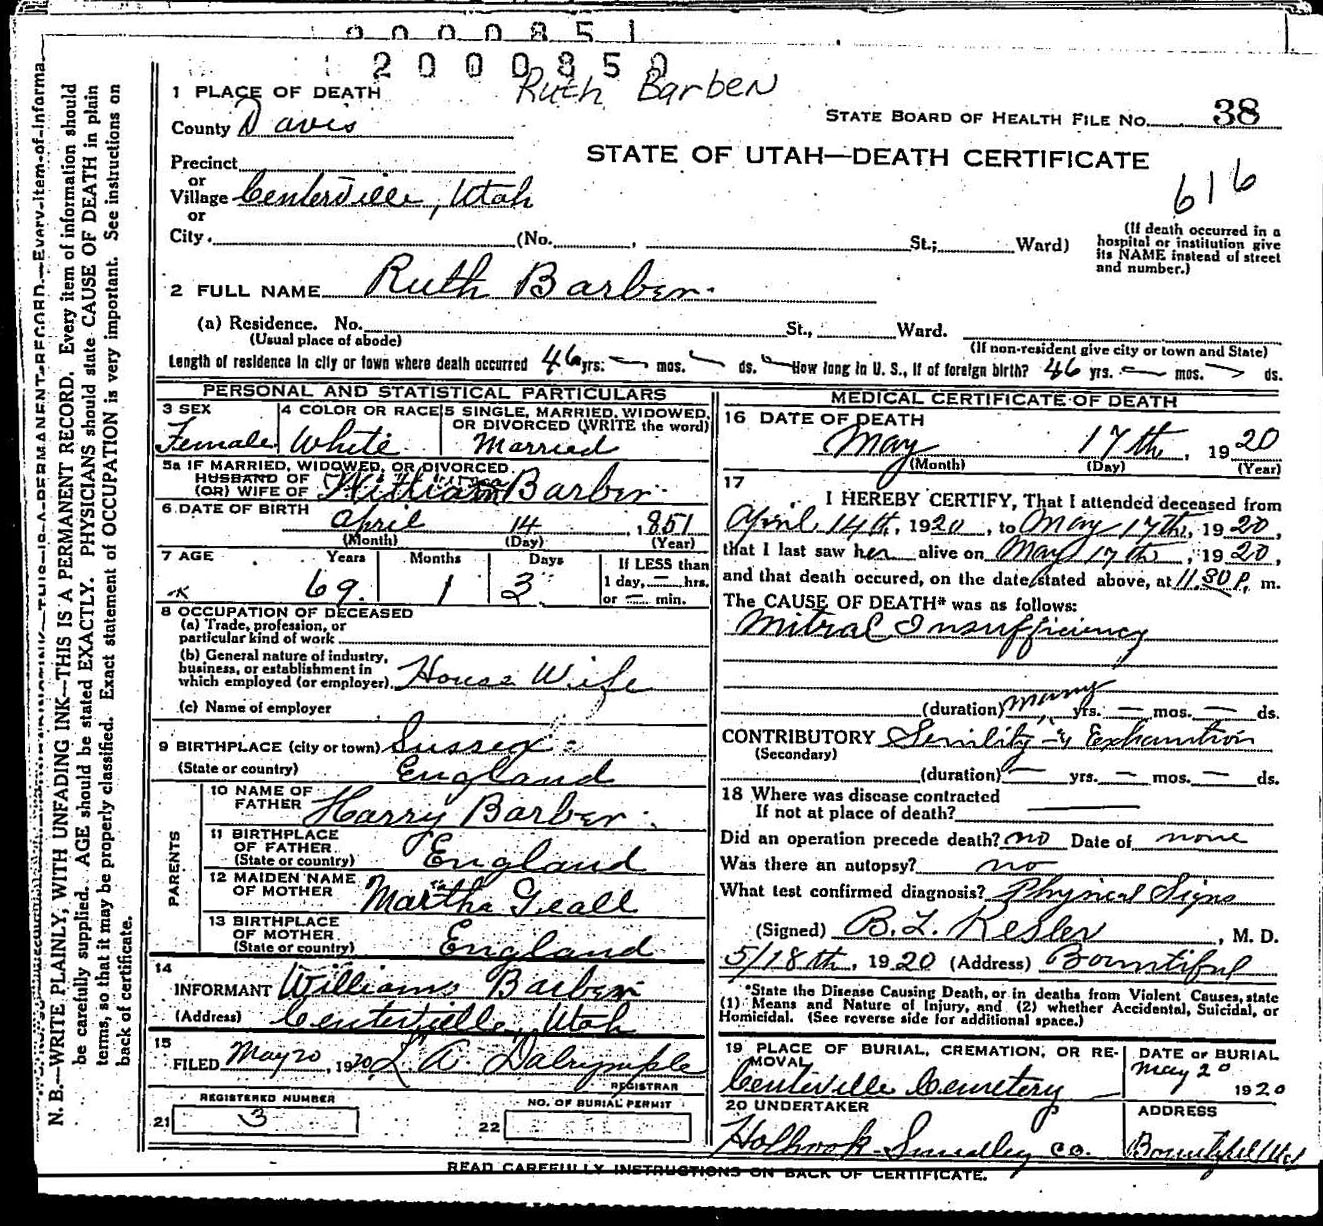 2000851
2000850
Ruth Barben
1 PLACE OF DEATH
STATE BOARD OF HEALTH FILE NO. 38
County Davis
STATE OF UTAH—DEATH CERTIFICATE
616
Precinct
or
Village Centerville, Utah
or
City (No. , St.; Ward)
(If death occurred in a hospital or institution give its NAME instead of street and number.)
2 FULL NAME Ruth Barben
(a) Residence. No. St., Ward.
(Usual place of abode) (If non-resident give city or town and State)
Length of residence in city or town where death occurred 46 yrs. — mos. — ds. How long in U. S., if of foreign birth? 46 yrs. — mos. — ds.
PERSONAL AND STATISTICAL PARTICULARS
3 SEX Female
4 COLOR OR RACE White
5 SINGLE, MARRIED, WIDOWED, OR DIVORCED (WRITE the word) Married
5a IF MARRIED, WIDOWED, OR DIVORCED
HUSBAND OF
(OR) WIFE OF William Barber
6 DATE OF BIRTH April 14, 1851
(Month) (Day) (Year)
7 AGE Years Months Days If LESS than
69 1 3 1 day, — hrs.
or — min.
8 OCCUPATION OF DECEASED
(a) Trade, profession, or
particular kind of work
(b) General nature of industry,
business, or establishment in
which employed (or employer) House Wife
(c) Name of employer
9 BIRTHPLACE (city or town) Sussex
(State or country) England
PARENTS
10 NAME OF
FATHER Harry Barber
11 BIRTHPLACE
OF FATHER
(State or country) England
12 MAIDEN NAME
OF MOTHER Martha Geall
13 BIRTHPLACE
OF MOTHER
(State or country) England
14
INFORMANT William Barber
(Address) Centerville, Utah
15
FILED May 20, 1920 L. A. Dalrymple
REGISTRAR
REGISTERED NUMBER
21 3
NO. OF BURIAL PERMIT
22
MEDICAL CERTIFICATE OF DEATH
16 DATE OF DEATH
May 17th, 1920
(Month) (Day) (Year)
17
I HEREBY CERTIFY, That I attended deceased from
April 14th, 1920, to May 17th, 1920,
that I last saw her alive on May 17th, 1920,
and that death occured, on the date stated above, at 11.30 P. m.
The CAUSE OF DEATH* was as follows:
Mitral Insufficiency
(duration) many yrs. — mos. — ds.
CONTRIBUTORY Senility & Exhaustion
(Secondary)
(duration) — yrs. — mos. — ds.
18 Where was disease contracted
If not at place of death?
Did an operation precede death? no Date of none
Was there an autopsy? no
What test confirmed diagnosis? Physical Signs
(Signed) B. L. Kesler, M. D.
5/18th, 1920 (Address) Bountiful
*State the Disease Causing Death, or in deaths from Violent Causes, state
(1) Means and Nature of Injury, and (2) whether Accidental, Suicidal, or
Homicidal. (See reverse side for additional space.)
19 PLACE OF BURIAL, CREMATION, OR RE-
MOVAL
Centerville Cemetery
DATE OF BURIAL
May 20
1920
20 UNDERTAKER
Holbrook-Smedley co.
ADDRESS
Bountiful Ut
READ CAREFULLY INSTRUCTIONS ON BACK OF CERTIFICATE.
N. B.—WRITE PLAINLY, WITH UNFADING INK—THIS IS A PERMANENT RECORD. Every item of information should
be carefully supplied. AGE should be stated EXACTLY. PHYSICIANS should state CAUSE OF DEATH in plain
terms, so that it may be properly classified. Exact statement of OCCUPATION is very important. See instructions on
back of certificate.